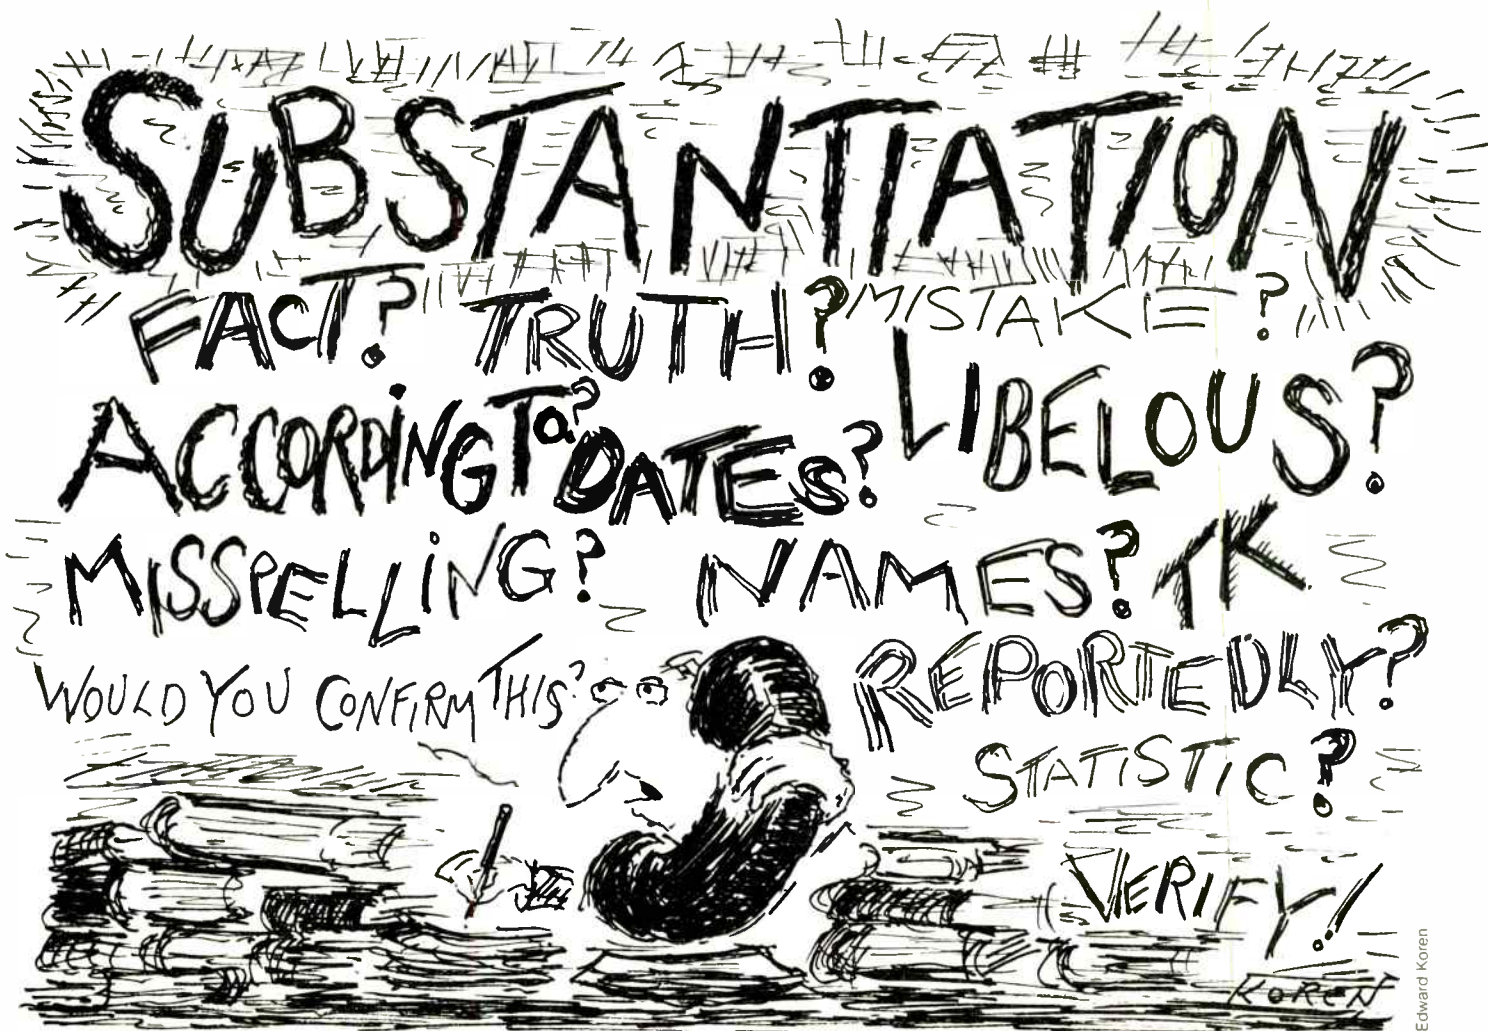 SUBSTANTIATION
FACT? TRUTH? MISTAKE?
ACCORDING TO? DATES? LIBELOUS?
MISSPELLING? NAMES? TK
WOULD YOU CONFIRM THIS? REPORTEDLY?
STATISTIC?
VERIFY!
KOREN
Edward Koren